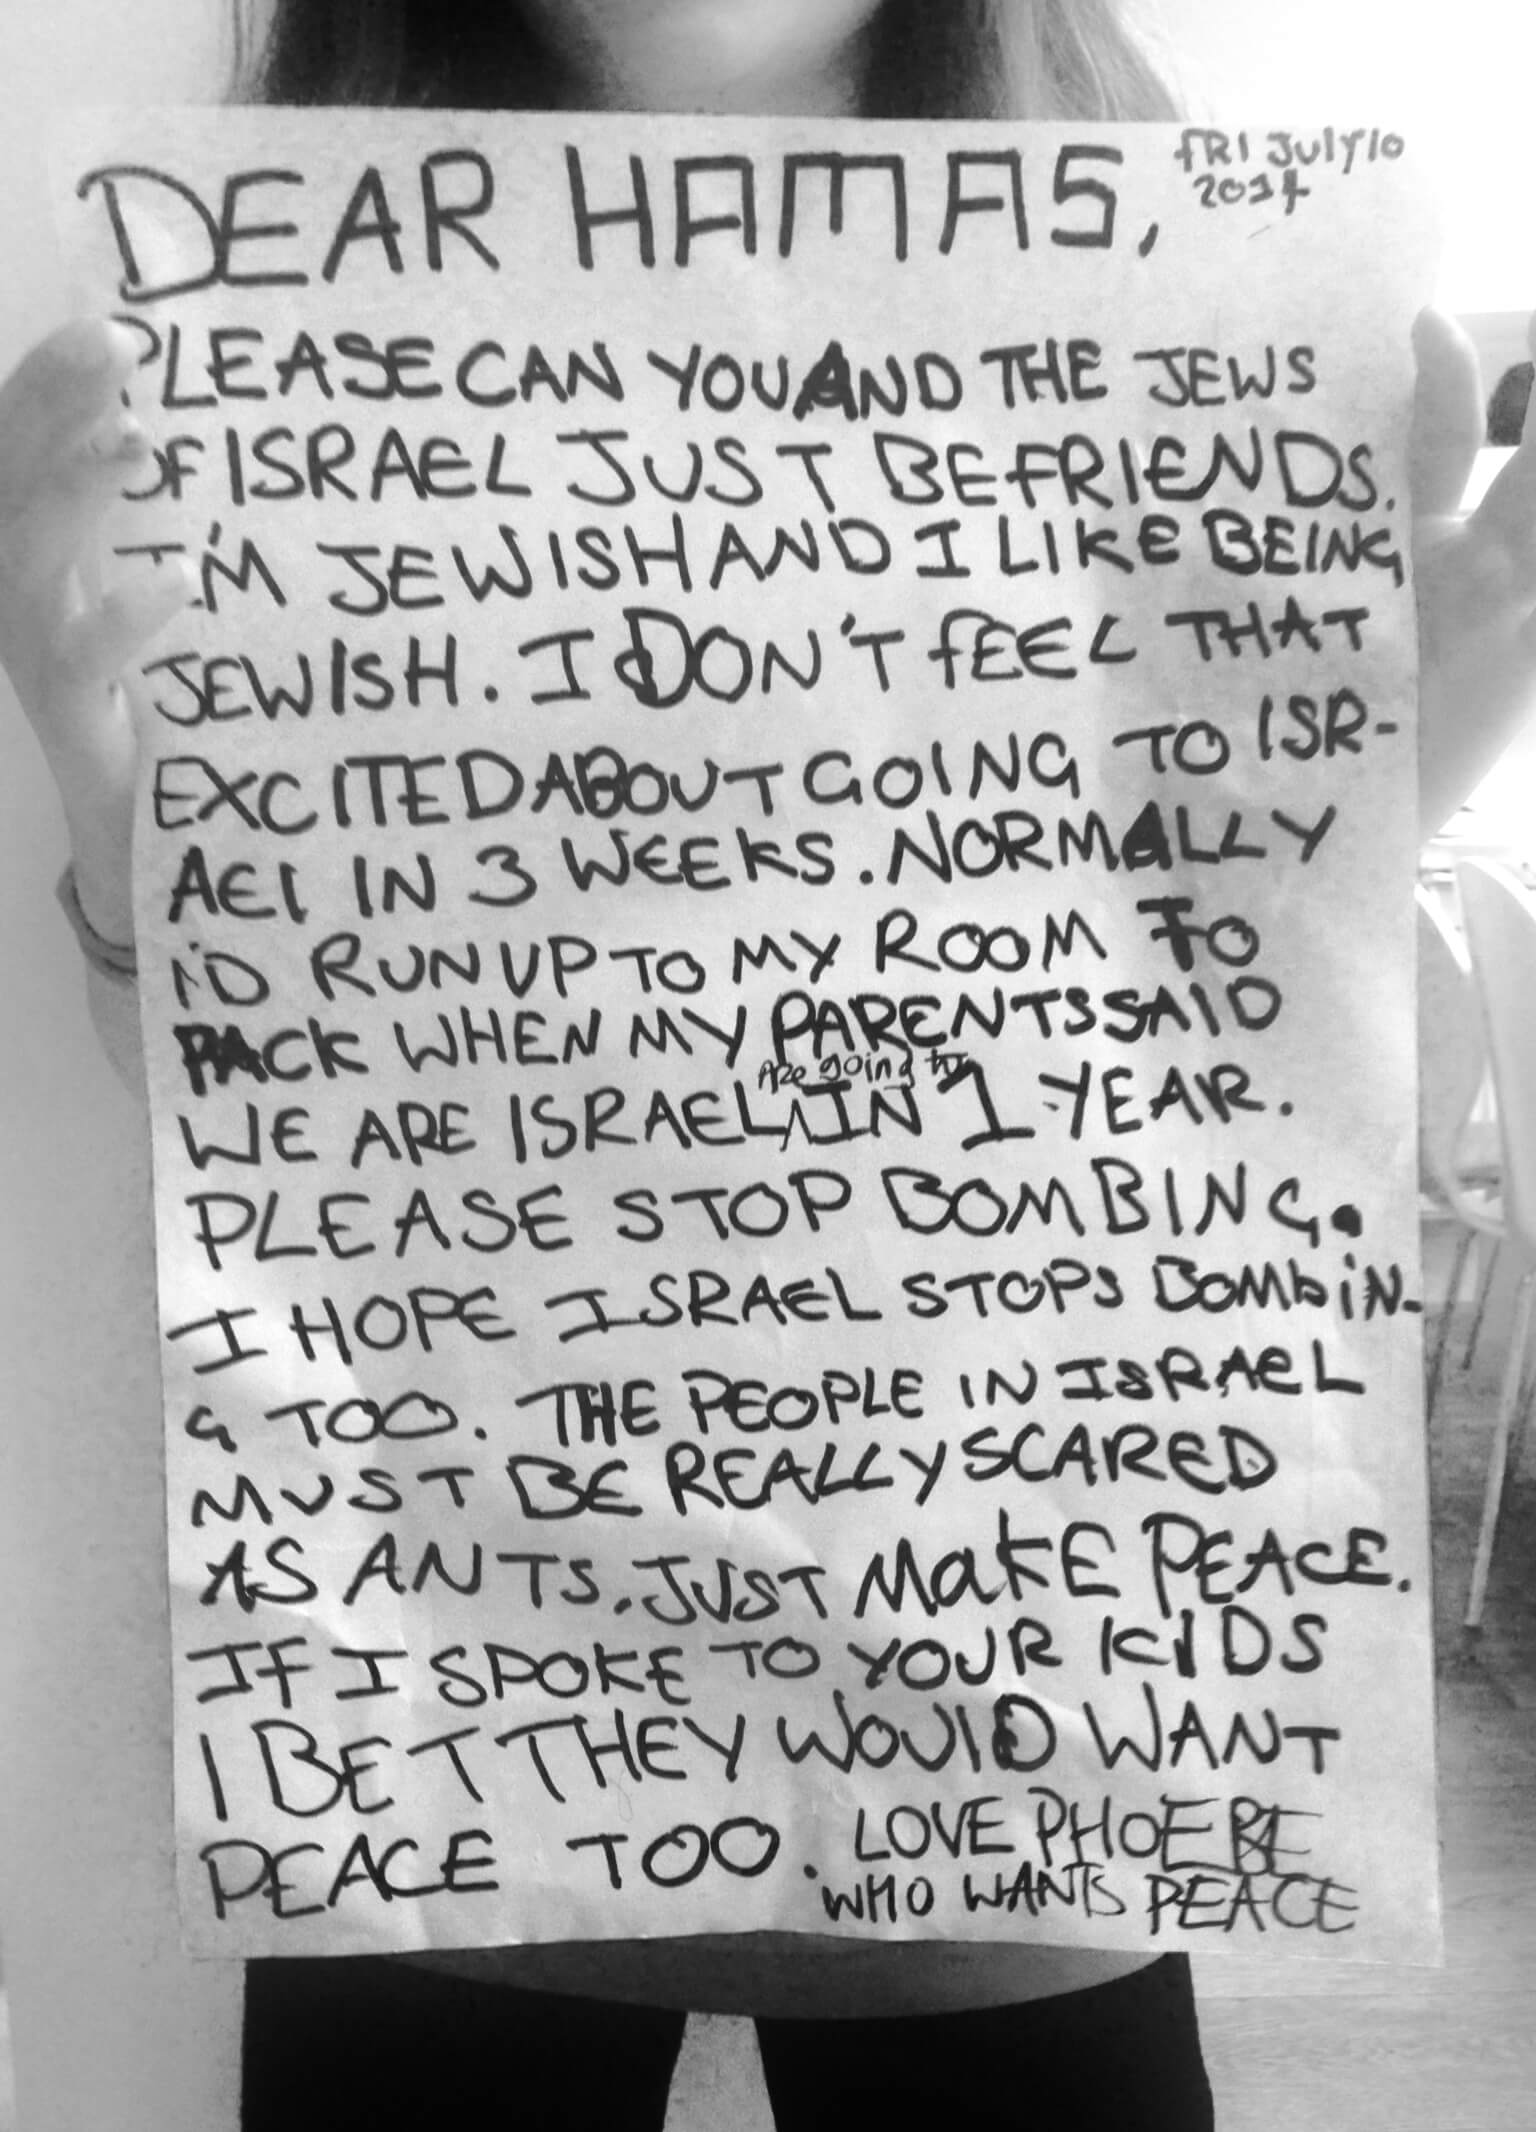 DEAR HAMAS,
FRI JUly 10
2014
PLEASE CAN YOU AND THE JEWS
OF ISRAEL JUST BE FRIENDS.
I'M JEWISH AND I LIKE BEING
JEWISH. I DON'T FEEL THAT
EXCITED ABOUT GOING TO ISR-
AEl IN 3 WEEKS. NORMALLY
I'D RUN UP TO MY ROOM TO
PACK WHEN MY PARENTS SAID
Are going to
WE ARE ISRAEL, IN 1 YEAR.
PLEASE STOP BOMBING.
I HOPE ISRAEL STOPS BOMbiN-
G TOO. THE PEOPLE IN ISRAEL
MUST BE REALLY SCARED
AS ANTS. JUST MaKE PEACE.
IF I SPOKE TO YOUR KIDS
I BET THEY WOUlD WANT
PEACE TOO. LOVE PHOEBE
WHO WANTS PEACE